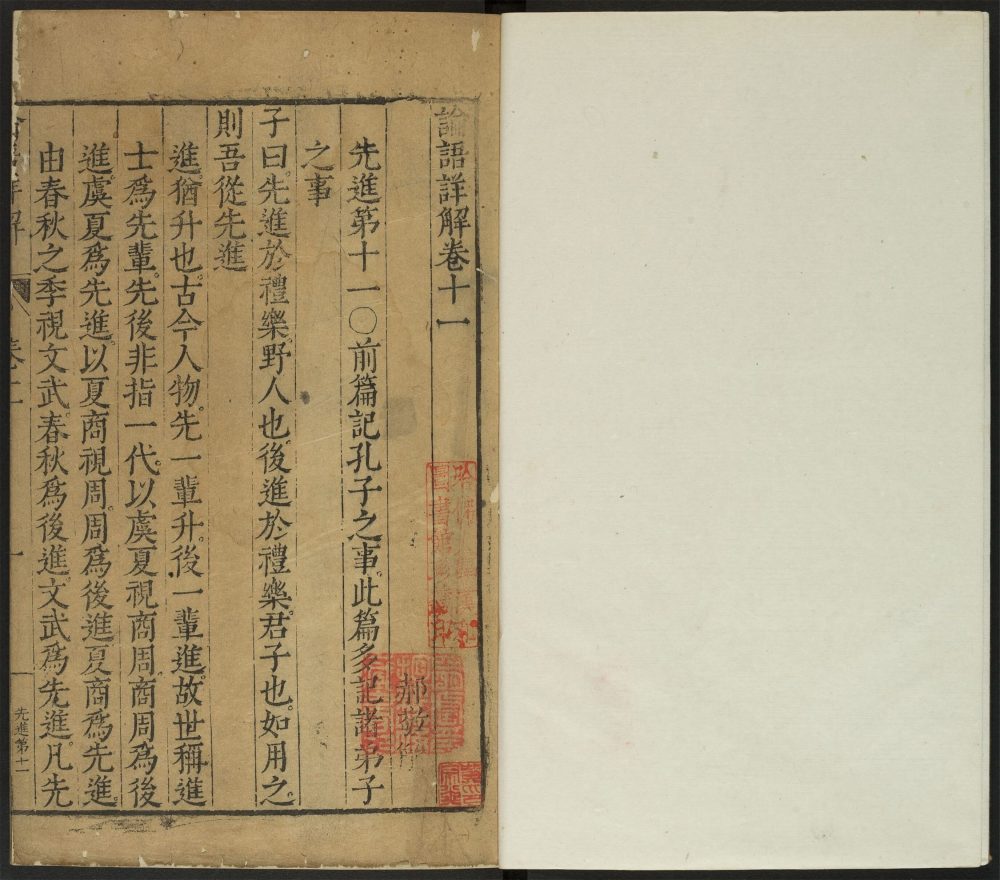 論語詳解卷十一
郝敬
先進第十一〇前篇記孔子之事。此篇多記諸弟子
之事
子曰。先進於禮樂。野人也。後進於禮樂。君子也。如用之。
則吾從先進
進。猶升也。古今人物。先一輩升。後一輩進。故世稱進
士爲先輩。先後非指一代。以虞夏視商周。商周爲後
進。虞夏爲先進。以夏商視周。周爲後進。夏商爲先進。
由春秋之季視文武。春秋爲後進。文武爲先進。凡先
先進第十一
一